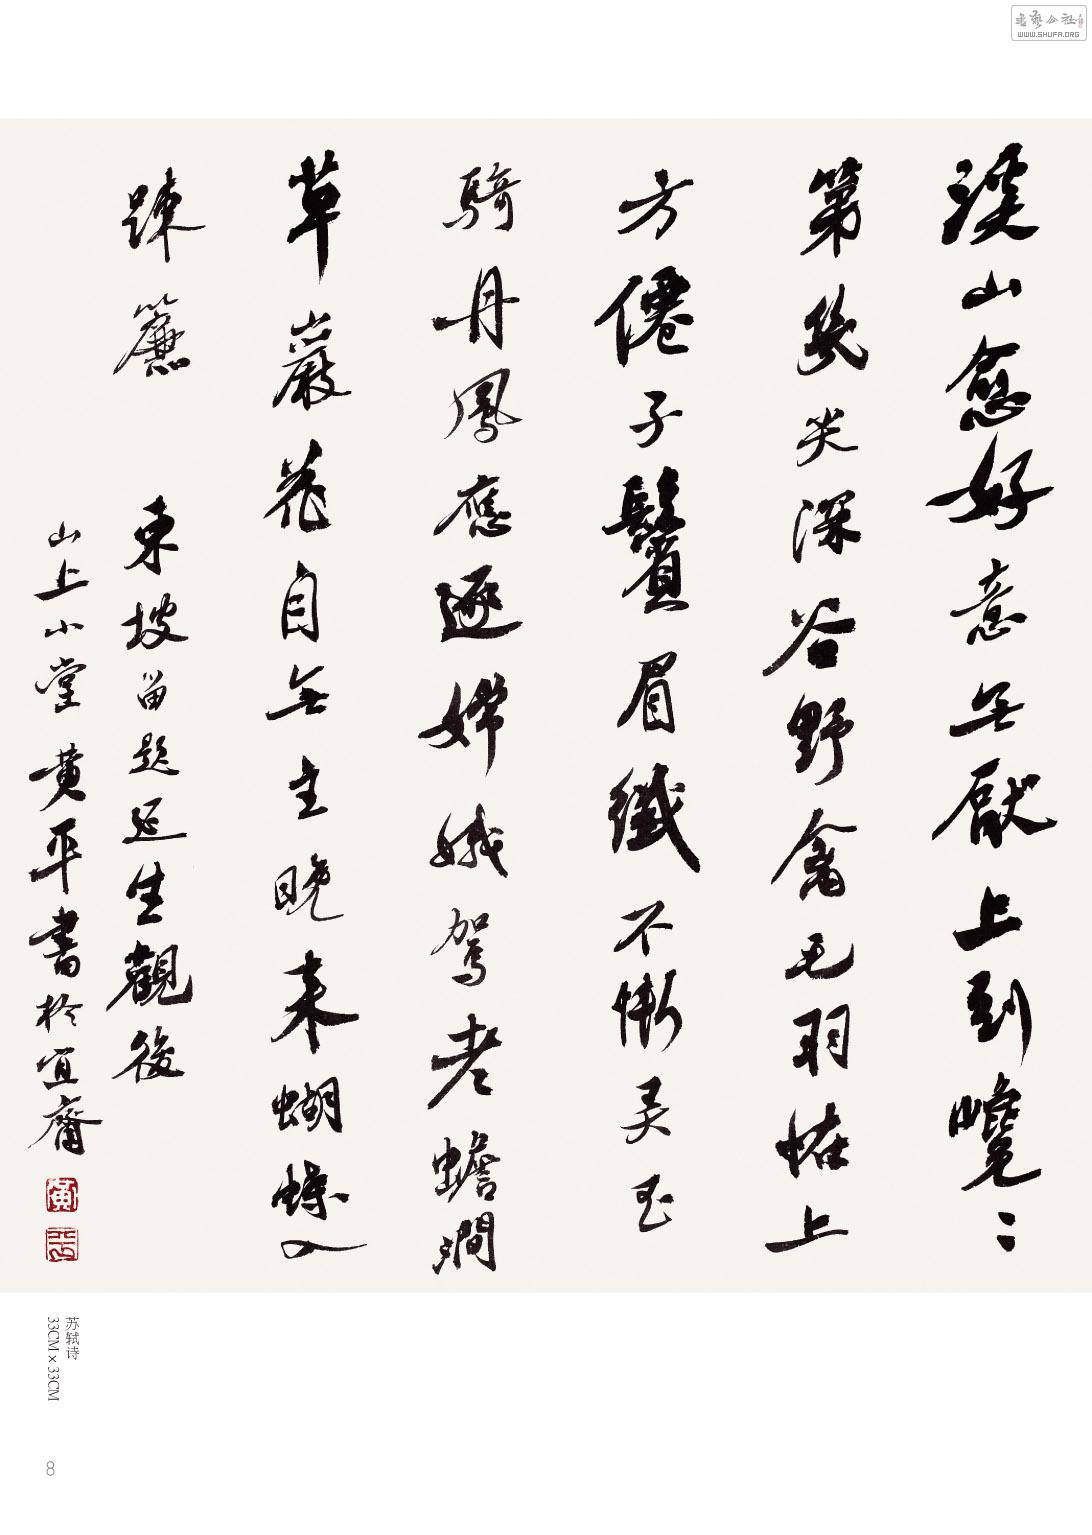 溪山愈好意無厭上到巉〻
第幾尖深谷野禽毛羽恠上
方僊子鬢眉纖不慚弄玉
騎丹鳳應逐嫦娥駕老蟾澗
草巖花自無主晚来蝴蝶入
踈簾 東坡留題延生觀後
山上小堂 黄平書於宜齋
黄
平
苏轼诗
33CM×33CM
8
WWW.SHUFA.ORG